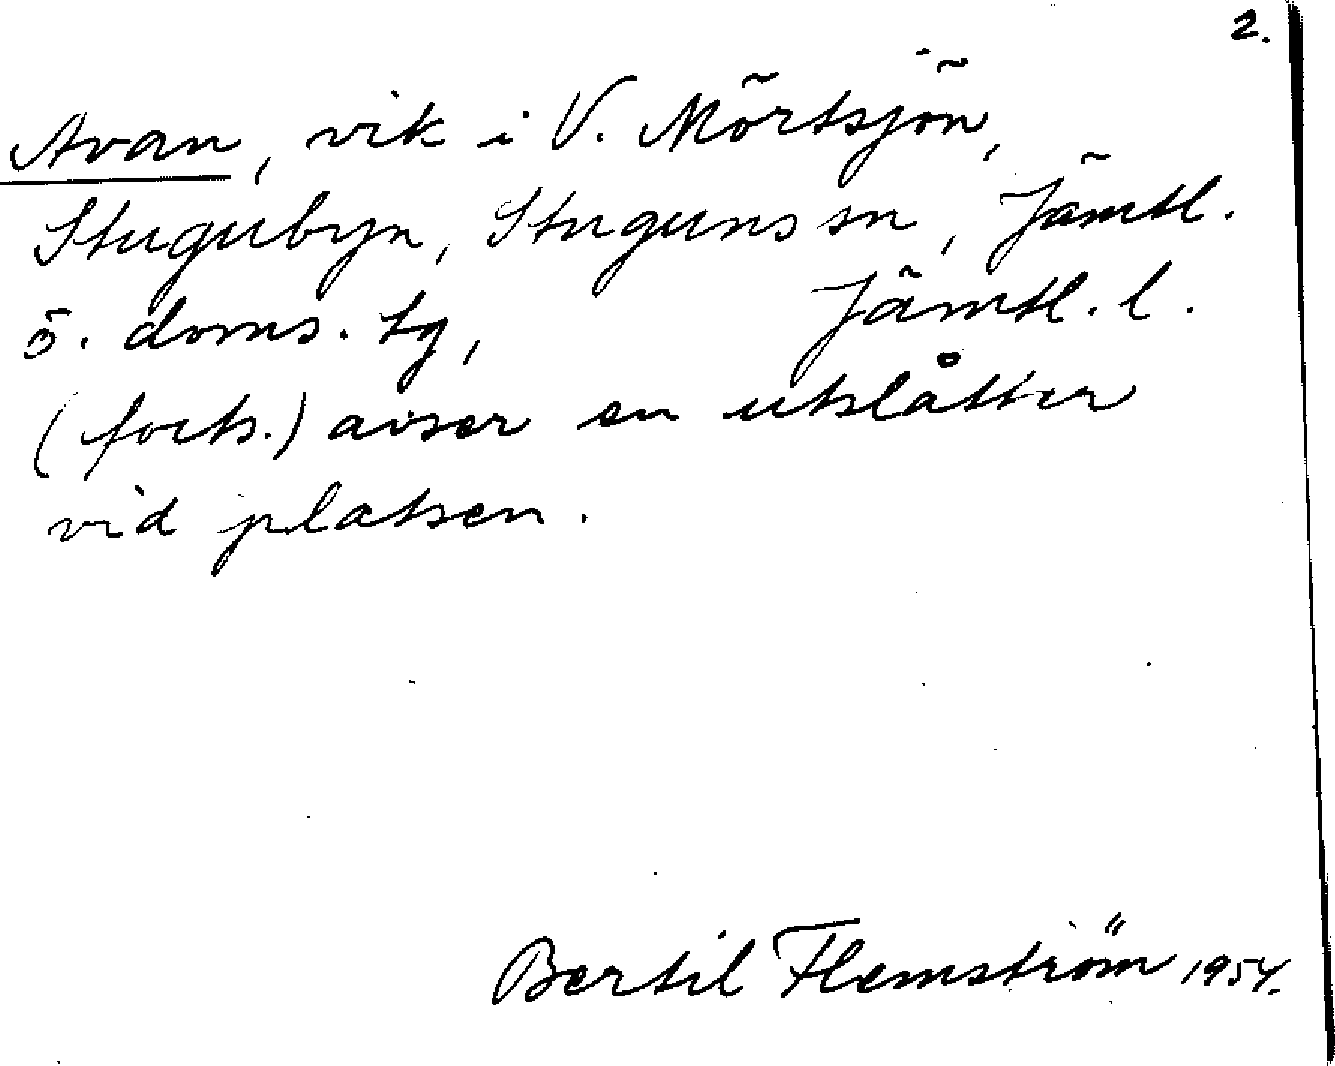 2.
Avan, vik i V. Mörtsjön,
Stugubyn, Stuguns sn, Jämtl.
ö. doms. tg, Jämtl. l.
(forts.) avser en utslåtter
vid platsen.
Bertil Flemström 1954.